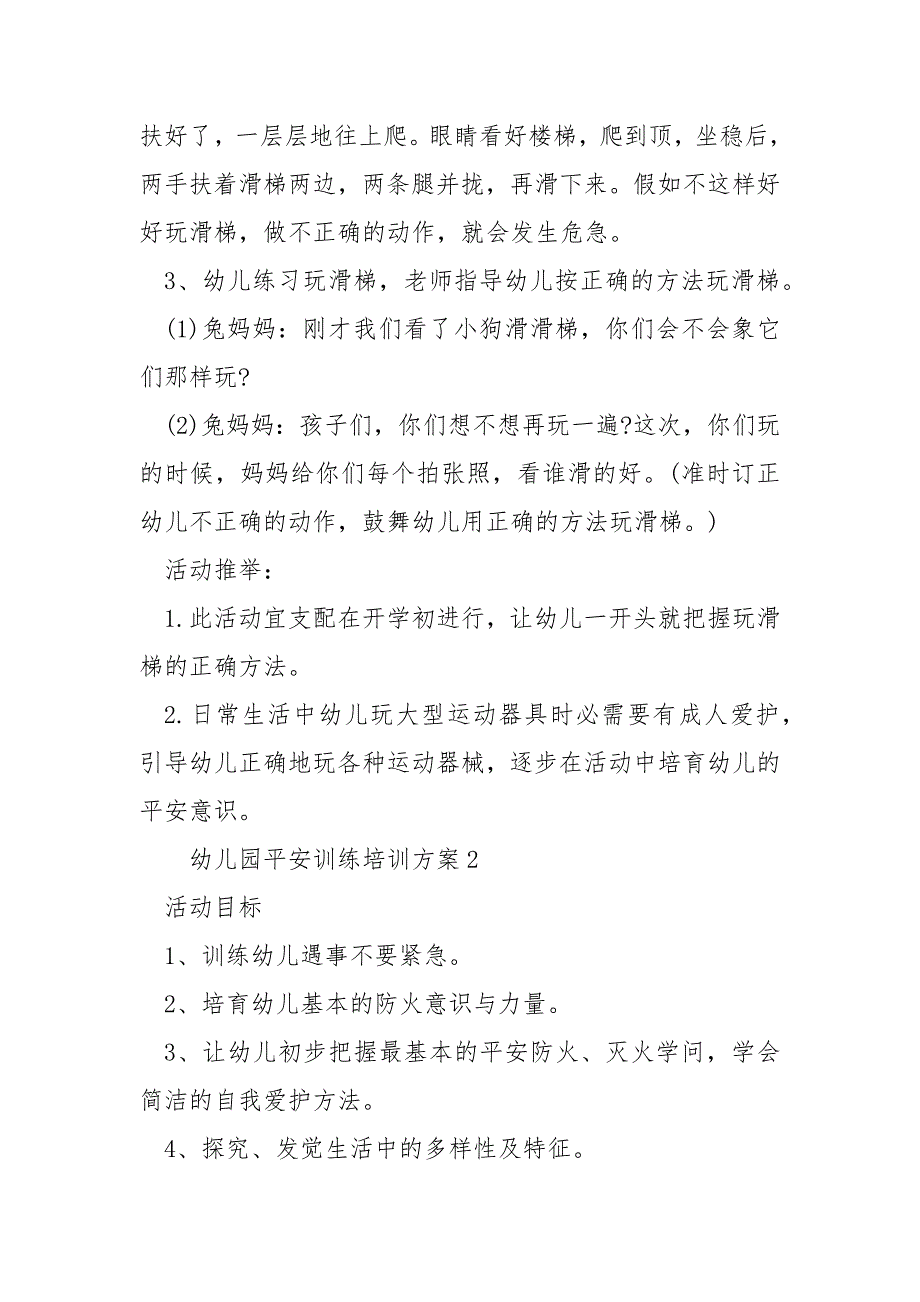 扶好了，一层层地往上爬。眼睛看好楼梯，爬到顶，坐稳后，
两手扶着滑梯两边，两条腿并拢，再滑下来。假如不这样好
好玩滑梯，做不正确的动作，就会发生危急。
3、幼儿练习玩滑梯，老师指导幼儿按正确的方法玩滑梯。
(1)兔妈妈：刚才我们看了小狗滑滑梯，你们会不会象它
们那样玩?
(2)兔妈妈：孩子们，你们想不想再玩一遍?这次，你们玩
的时候，妈妈给你们每个拍张照，看谁滑的好。(准时订正
幼儿不正确的动作，鼓舞幼儿用正确的方法玩滑梯。)
活动推举：
1.此活动宜支配在开学初进行，让幼儿一开头就把握玩滑
梯的正确方法。
2.日常生活中幼儿玩大型运动器具时必需要有成人爱护，
引导幼儿正确地玩各种运动器械，逐步在活动中培育幼儿的
平安意识。
幼儿园平安训练培训方案2
活动目标
1、训练幼儿遇事不要紧急。
2、培育幼儿基本的防火意识与力量。
3、让幼儿初步把握最基本的平安防火、灭火学问，学会
简洁的自我爱护方法。
4、探究、发觉生活中的多样性及特征。